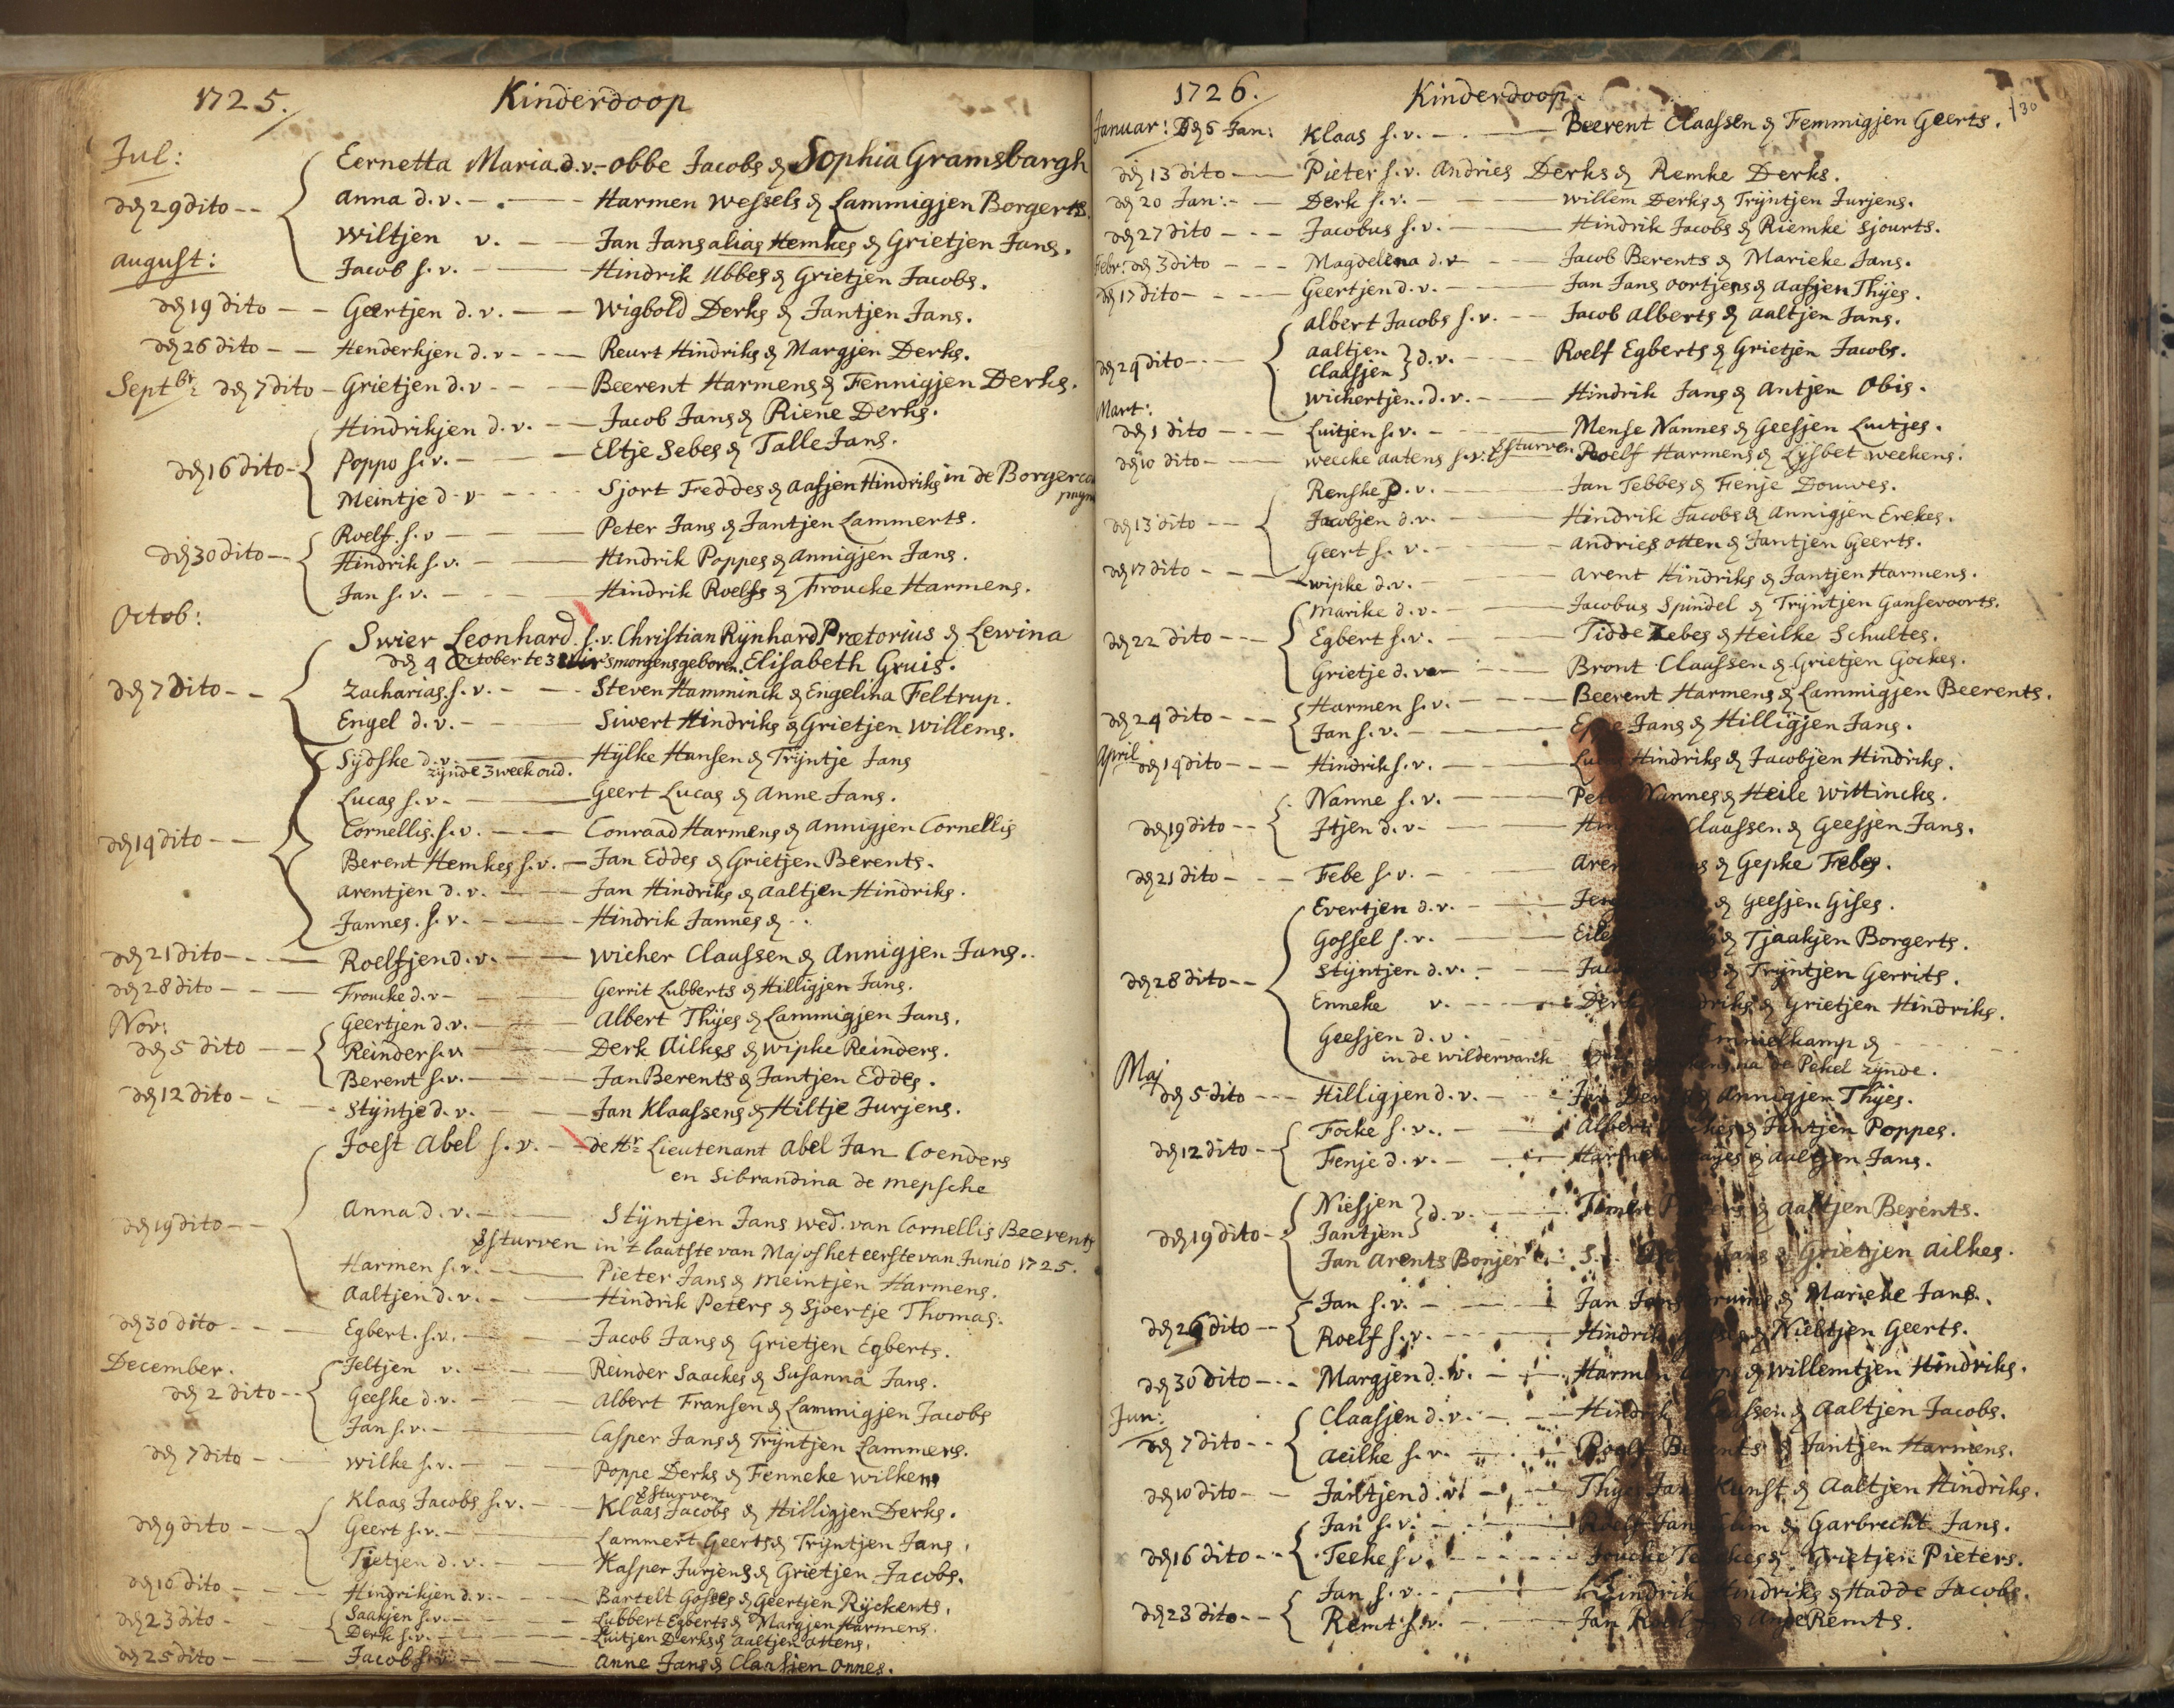 1725. Kinderdoop
Jul:
Eernetta Maria d.v. - Obbe Jacobs & Sophia Gramsbargh
deṇ 29 dito - - Anna d.v. - . - Harmen Wessels & Lammigjen Borgerts.
Wiltjen v. - - Jan Jans alias Hemkes & Grietjen Jans.
August:
Jacob s.v. - - Hindrik Ubbes & Grietjen Jacobs.
den 19 dito - - Geertjen d.v. - - Wigbold Derks & Jantjen Jans.
den 26 dito - - Henderkjen d.v - - - Reurt Hindriks & Margjen Derks.
Septbr: den 7 dito - Grietjen d.v - - - Beerent Harmens & Fennigjen Derks.
Hindrikjen d.v. - - Jacob Jans & Riene Derks.
den 16 dito - Poppo s.v. - - - Eltje Sebes & Talle Jans.
Meintje d.v - - - - Sjort Freddes & Aafjen Hindriks in de Borger
Roelf s.v - - - Peter Jans & Jantjen Lammerts.
den 30 dito - - Hindrik s.v. - - Hindrik Poppes & Annigjen Jans.
Jan s.v. - - - Hindrik Roelfs & Froucke Harmens.
Octob:
Swier Leonhard s.v. Christian Rÿnhard Prætorius & Lewina
den 4 October te 3 'smorgens geboren. Elisabeth Gruis.
den 7 dito - - Zacharias s.v. - - - Steven Hamminck & Engelina Feltrup.
Engel d.v. - - - Siwert Hindriks & Grietjen Willems.
Sÿdske d.v. - Hÿlke Hansen & Trÿntje Jans
zÿnde 3 week oud.
Lucas s.v. - - Geert Lucas & Anne Jans.
Cornellis s.v. - - - Conraad Harmens & Annigjen Cornellis
den 14 dito - - Berent Hemkes s.v. - Jan Eddes & Grietjen Berents.
Arentjen d.v. - - Jan Hindriks & Aaltjen Hindriks.
Jannes s.v. - - - Hindrik Jannes & - .
den 21 dito - - - Roelfjen d.v. - - Wicher Claassen & Annigjen Jans.
den 28 dito - - - Froucke d.v - Gerrit Lubberts & Hilligjen Jans.
Nov:
Geertjen d.v. - - Albert Thÿes & Lammigjen Jans.
den 5 dito - - Reinder s.v. - Derk Ailkes & Wipke Reinders.
Berent s.v. - - Jan Berents & Jantjen Eddes.
den 12 dito - - - Stÿntje d.v. - - Jan Klaassens & Hiltje Jurjens.
Joest Abel s.v. - - de Hr: Lieutenant Abel Jan Coenders
en Sibrandina de Mepsche
den 19 dito - - Anna d.v. - - Stÿntjen Jans wed. van Cornellis Beerents
gesturven in 't laatste van Maj of het eerste van Junio 1725.
Harmen s.v. - - Pieter Jans & Meintjen Harmens.
Aaltjen d.v. - - Hindrik Peters & Sjoertje Thomas.
den 30 dito - - - Egbert s.v. - - Jacob Jans & Grietjen Egberts.
December.
Jeltjen v. - - Reinder Saackes & Susanna Jans.
den 2 dito - - Geeske d.v. - - Albert Fransen & Lammigjen Jacobs
Jan s.v. - - Casper Jans & Trÿntjen Lammers.
den 7 dito - - Wilke s.v. - - Poppe Derks & Fenneke Wilkens
gesturven
Klaas Jacobs s.v. - - Klaas Jacobs & Hilligjen Derks.
den 9 dito - - Geert s.v. - - Lammert Geerts & Trÿntjen Jans.
Tjetjen d.v. - - Kasper Jurjens & Grietjen Jacobs.
den 16 dito - - Hindrikjen d.v. - - Bartelt Gosses & Geertjen Rÿckents.
den 23 dito - Saakjen s.v. - - Lubbert Egberts & Margjen Harmens.
Derk s.v. - - Luitjen Derks & Aaltjen Attens.
den 25 dito - - - Jacob s.v. - - Anne Jans & Claasjen Onnes.
1726. Kinderdoop. 130
Januar: Den 6 Jan: Klaas s.v. - . - Beerent Claassen & Femmigjen Geerts.
den 13 dito - Pieter s.v. Andries Derks & Remke Derks.
den 20 Jan: - - Derk s.v. - - Willem Derks & Trÿntjen Jurjens.
den 27 dito - - - Jacobus s.v. - - Hindrik Jacobs & Riemke Sjourts.
Febr: den 3 dito - - - Magdelena d.v - - - Jacob Berents & Marieke Jans.
den 17 dito - - - Geertjen d.v. - - Jan Jans Oortjens & Aafjen Thÿes.
Albert Jacobs s.v. - - Jacob Alberts & Aaltjen Jans.
den 24 dito - - - Aaltjen
Claasjen } d.v. - - Roelf Egberts & Grietjen Jacobs.
Wichertjen d.v. - - Hindrik Jans & Antjen Obis.
Mart:
den 1 dito - - - Luitjen s.v. - - Mense Nannes & Geesjen Luitjes.
den 10 dito - - Weecke Aatens s.v. gesturven Roelf Harmens & Lÿsbet Weekens.
Renske d.v. - - Jan Tebbes & Fenje Douwes.
den 13 dito - - Jacobjen d.v. - - Hindrik Jacobs & Annigjen Erekes.
Geert s.v. - - Andries Otten & Jantjen Geerts.
den 17 dito - - - Wipke d.v. - - Arent Hindriks & Jantjen Harmens.
Marike d.v. - - Jacobus Spindel & Trÿntjen Gansevoorts.
den 22 dito - - - Egbert s.v. - - Tidde Zebes & Heilke Schultes.
Grietje d.v - - Bront Claassen & Grietjen Gockes.
Harmen s.v. - - - Beerent Harmens & Lammigjen Beerents.
den 24 dito - - - Jan s.v. - - Jans & Hilligjen Jans.
April den 14 dito - - - Hindrik s.v. - - Hindriks & Jacobjen Hindriks.
Nanne s.v. - - Nannes & Heile Wittincks.
den 19 dito - - Itjen d.v. - - Claassen & Geesjen Jans.
den 21 dito - - - Febe s.v. - - & Gepke Febes.
Evertjen d.v. - - & Geesjen Gises.
Gossel s.v. - - & Tjaakjen Borgerts.
den 28 dito - - Stÿntjen d.v. - - & Trÿntjen Gerrits.
Enneke v. - - - & Grietjen Hindriks.
Geesjen d.v. - & - - -
in de Wildervanck na de Pekel zÿnde.
Maj
den 5 dito - - - Hilligjen d.v. - - & Annigjen Thÿes.
den 12 dito - - Focke s.v. - - Albert & Jantjen Poppes.
Fenje d.v. - - & Aaltjen Jans.
den 19 dito - Niesjen
Jantjen } d.v. - - & Aaltjen Berents.
Jan Arents Bonjer s.v. & Grietjen Ailkes.
Jan s.v. - - Jan & Marieke Jans.
den 26 dito - - Roelf s.v. - - Hindrik & Niebtjen Geerts.
den 30 dito - - - Margjen d.v. - - Harmen & Willemtjen Hindriks.
Jun:
Claasjen d.v. - - Hindrik & Aaltjen Jacobs.
den 7 dito - - Aeilke s.v. - - Roelf & Jantjen Harmens.
den 10 dito - - Jantjen d.v. - - Kunst & Aaltjen Hindriks.
Jan s.v. - - & Garbrecht Jans.
den 16 dito - - Teeke s.v. - - & Grietjen Pieters.
Jan s.v. - - Hindrik Hindriks & Hadde Jacobs.
den 23 dito - - Remt s.v. - Jan Remts.